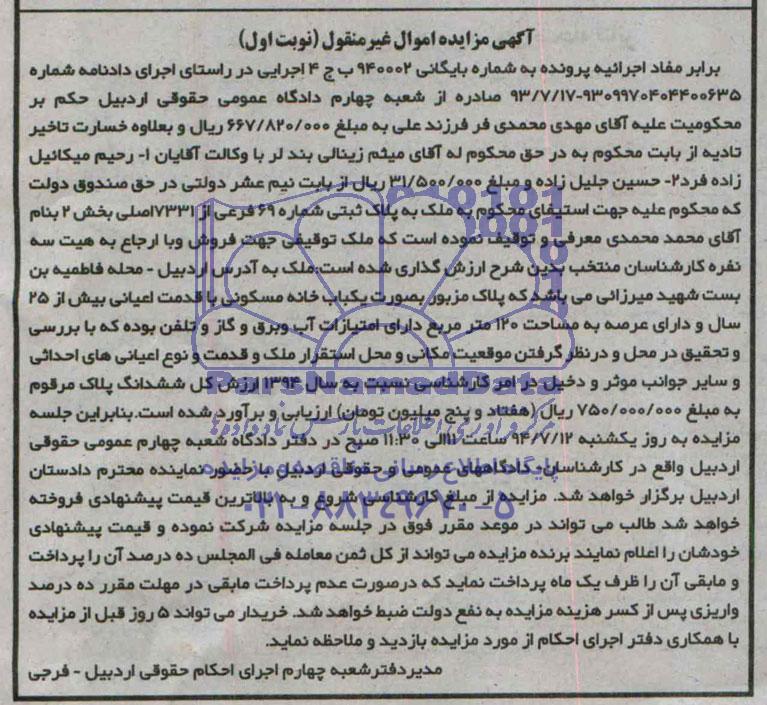 آگهی مزایده اموال غیر منقول (نوبت اول)
برابر مفاد اجرائیه پرونده به شماره بایگانی ۹۴۰۰۰۲ ب ج ۴ اجرایی در راستای اجرای دادنامه شماره
۹۳۰۹۹۷۰۴۰۴۴۰۰۶۳۵-۹۳/۷/۱۷ صادره از شعبه چهارم دادگاه عمومی حقوقی اردبیل حکم بر
محکومیت علیه آقای مهدی محمدی فر فرزند علی به مبلغ ۶۶۷/۸۲۰/۰۰۰ ریال و بعلاوه خسارت تاخیر
تادیه از بابت محکوم به در حق محکوم له آقای میثم زینالی بند لر با وکالت آقایان ۱- رحیم میکائیل
زاده فرد۲- حسین جلیل زاده و مبلغ ۳۱/۵۰۰/۰۰۰ ریال از بابت نیم عشر دولتی در حق صندوق دولت
که محکوم علیه جهت استیفای محکوم به ملک به پلاک ثبتی شماره ۶۹ فرعی از ۷۳۳۱اصلی بخش ۲ بنام
آقای محمد محمدی معرفی و توقیف نموده است که ملک توقیفی جهت فروش وبا ارجاع به هیت سه
نفره کارشناسان منتخب بدین شرح ارزش گذاری شده است:ملک به آدرس اردبیل - محله فاطمیه بن
بست شهید میرزائی می باشد که پلاک مزبور بصورت یکباب خانه مسکونی با قدمت اعیانی بیش از ۲۵
سال و دارای عرصه به مساحت ۱۲۰ متر مربع دارای امتیازات آب وبرق و گاز و تلفن بوده که با بررسی
و تحقیق در محل و درنظر گرفتن موقعیت مکانی و محل استقرار ملک و قدمت و نوع اعیانی های احداثی
و سایر جوانب موثر و دخیل در امر کارشناسی نسبت به سال ۱۳۹۴ ارزش کل ششدانگ پلاک مرقوم
به مبلغ ۷۵۰/۰۰۰/۰۰۰ ریال (هفتاد و پنج میلیون تومان) ارزیابی و برآورد شده است.بنابراین جلسه
مزایده به روز یکشنبه ۹۴/۷/۱۲ ساعت ۱۱الی ۱۱:۳۰ صبح در دفتر دادگاه شعبه چهارم عمومی حقوقی
اردبیل واقع در کارشناسان- دادگاههای عمومی و حقوقی اردبیل با حضور نماینده محترم دادستان
اردبیل برگزار خواهد شد. مزایده از مبلغ کارشناسی شروع و به بالاترین قیمت پیشنهادی فروخته
خواهد شد طالب می تواند در موعد مقرر فوق در جلسه مزایده شرکت نموده و قیمت پیشنهادی
خودشان را اعلام نمایند برنده مزایده می تواند از کل ثمن معامله فی المجلس ده درصد آن را پرداخت
و مابقی آن را ظرف یک ماه پرداخت نماید که درصورت عدم پرداخت مابقی در مهلت مقرر ده درصد
واریزی پس از کسر هزینه مزایده به نفع دولت ضبط خواهد شد. خریدار می تواند ۵ روز قبل از مزایده
با همکاری دفتر اجرای احکام از مورد مزایده بازدید و ملاحظه نماید.
مدیردفترشعبه چهارم اجرای احکام حقوقی اردبیل - فرجی
ParsNamadData
پایگاه اطلاع رسانی مناقصه و مزایده
۰۲۱-۸۸۳۴۹۶۷۰-۵